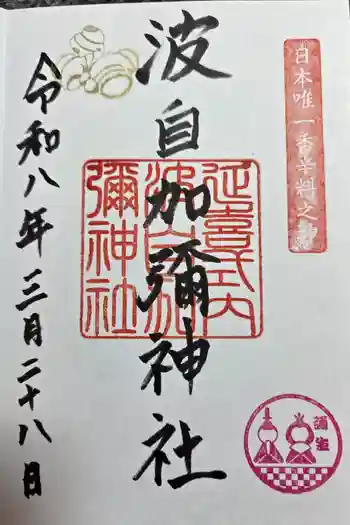 日本唯一香辛料之神
波自加彌神社
延喜式内
波自加
彌神社
令和八年三月二十八日
彌生